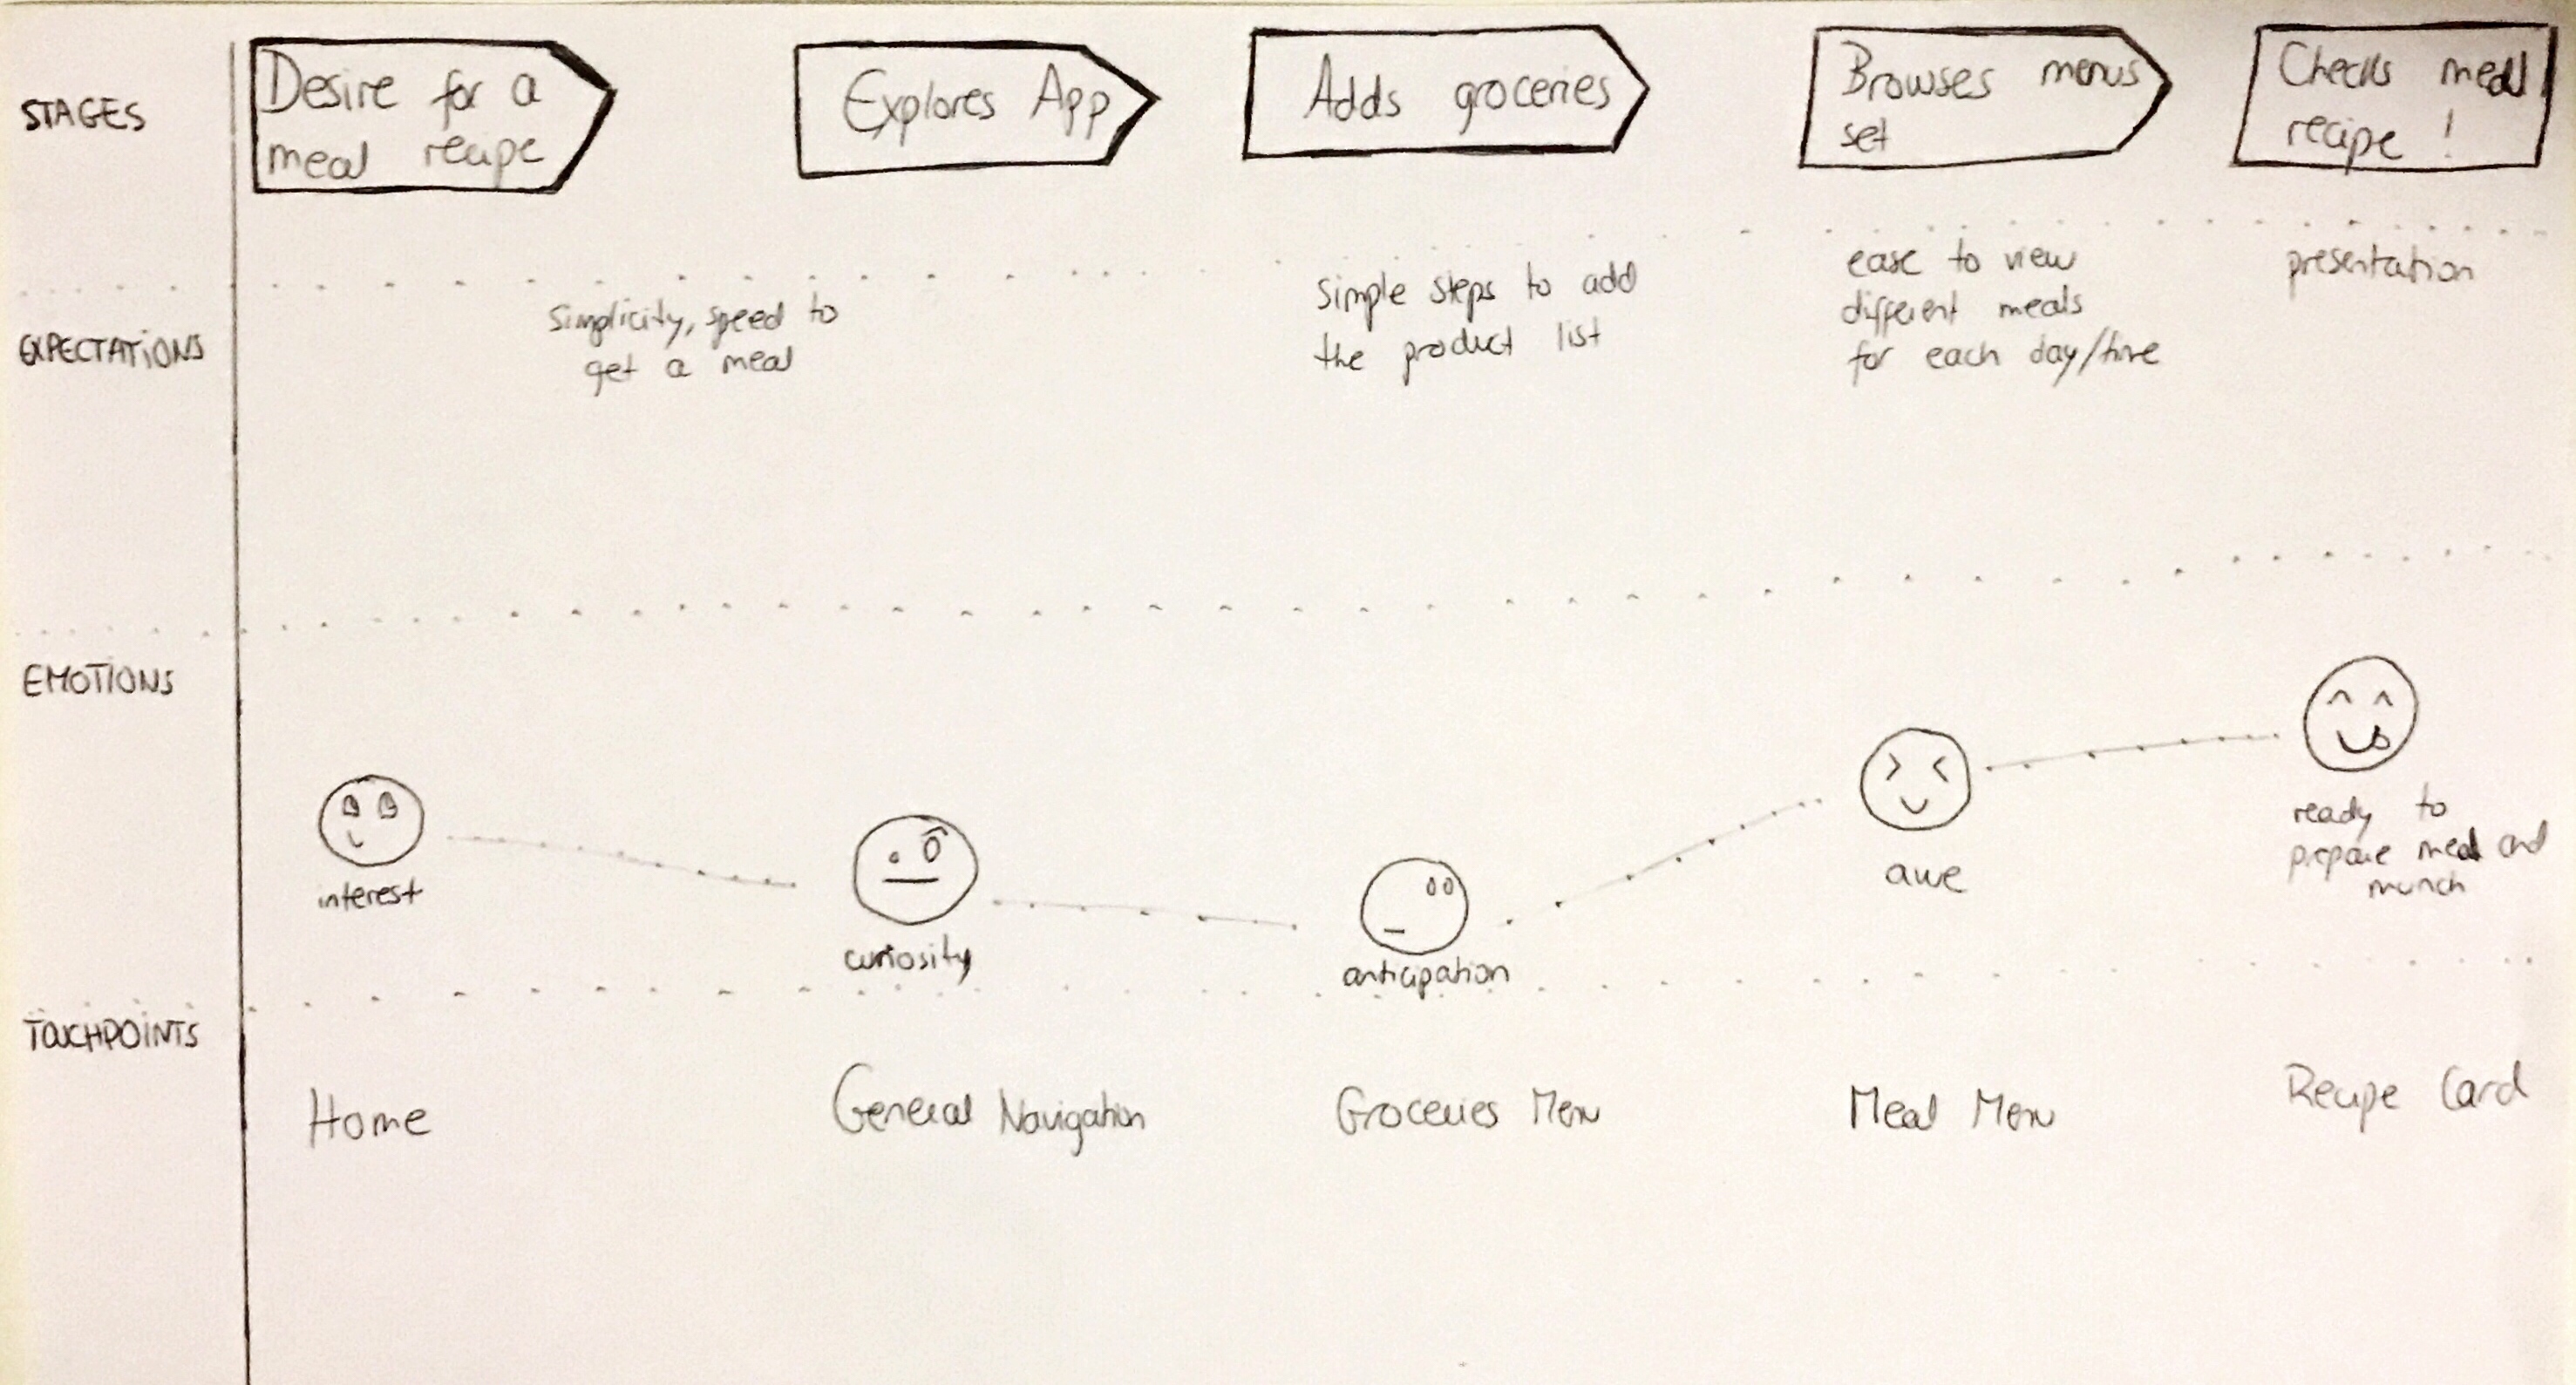 STAGES
Desire for a
meal recipe
Explores App
Adds groceries
Browses menus
set
Checks meal
recipe !
EXPECTATIONS
Simplicity, speed to
get a meal
Simple steps to add
the product list
ease to view
different meals
for each day/time
presentation
EMOTIONS
interest
curiosity
anticipation
awe
ready to
prepare meal and
munch
TOUCHPOINTS
Home
General Navigation
Groceries Menu
Meal Menu
Recipe Card